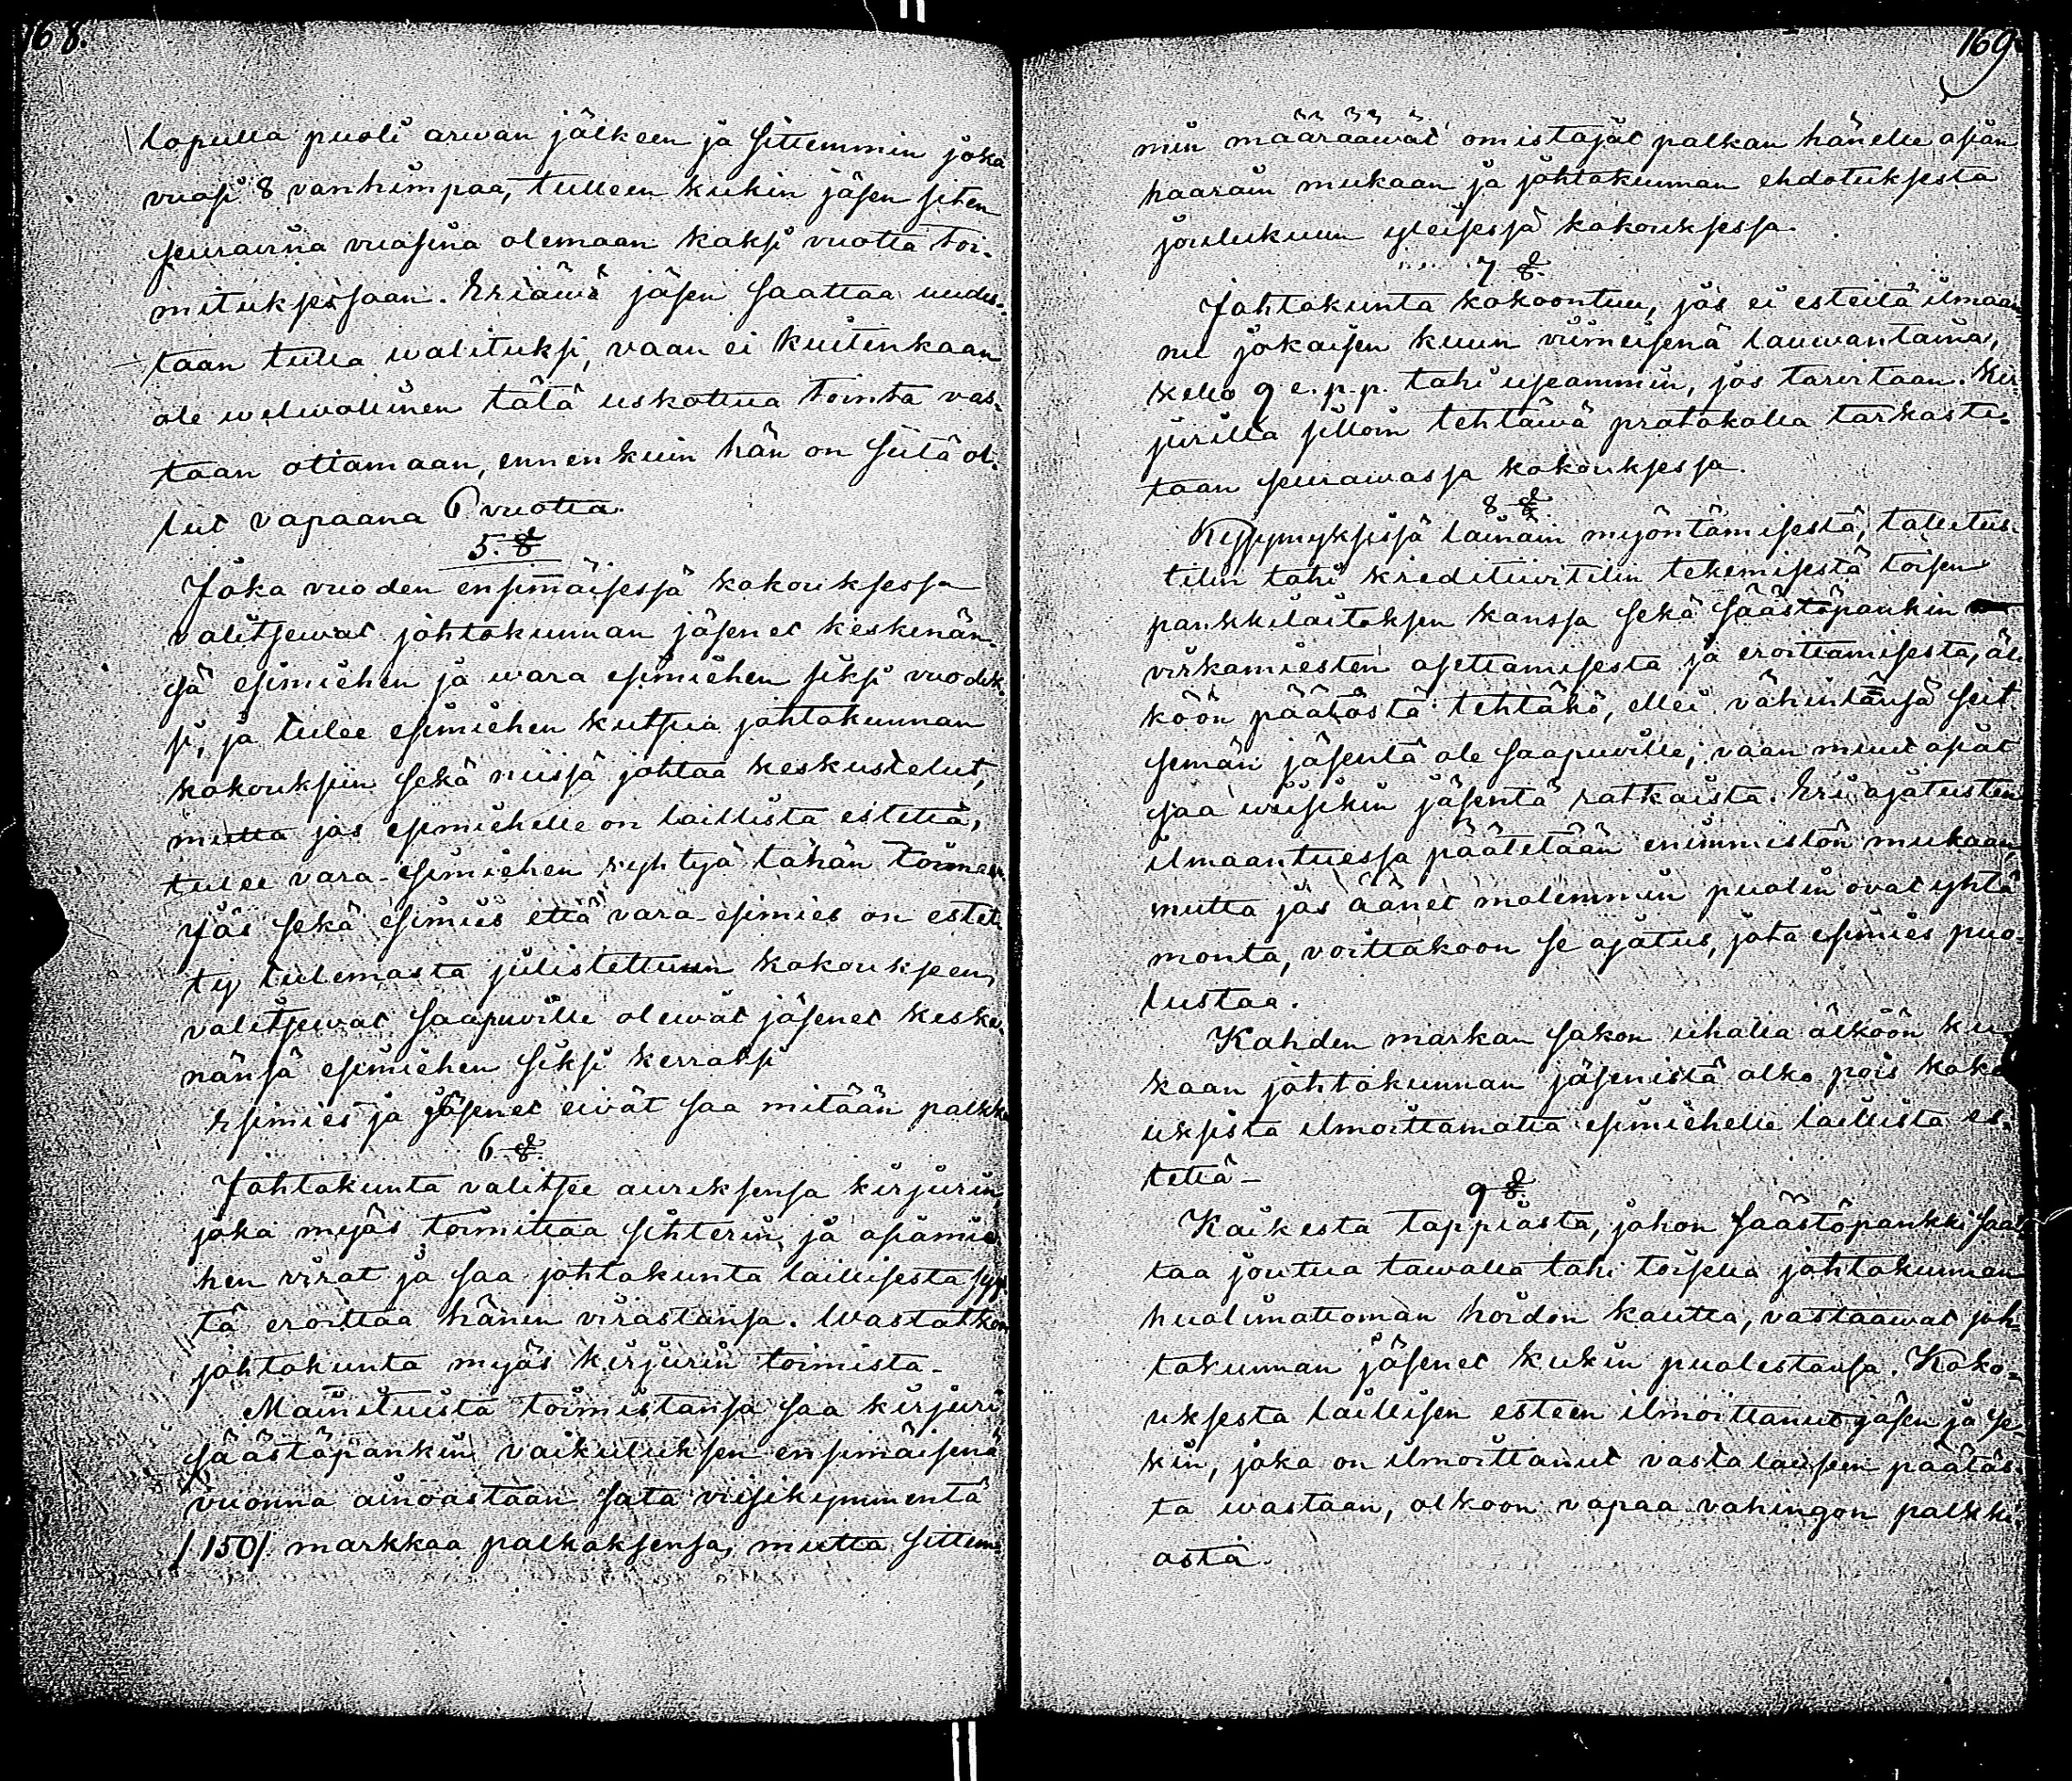 168.
lopulla puoli arwan jälkeen ja sittemmin joka
vuosi 8 vanhimpaa, tulleen kukin jäsen siten
seuraavina vuosina olemaan kaksi vuotta toi-
mituksessaan. Eriäwä jäsen saattaa uudes-
taan tulla walituksi, vaan ei kuitenkaan
ole welwollinen tätä uskottua tointa vas-
taan ottamaan, ennenkuin hän on siitä ol-
lut vapaana 6 vuotta.
5. §
Joka vuoden ensimäisessä kokouksessa
valitsewat johtokunnan jäsenet keskenän-
sä esimiehen ja wara esimiehen siksi vuodek-
si, ja tulee esimiehen kutsua johtokunnan
kokouksiin sekä niissä johtaa keskustelut,
mutta jos esimiehelle on laillista estettä,
tulee vara-esimiehen ryhtyä tähän toimeen.
Jos sekä esimies että vara-esimies on estet-
ty tulemasta julistettuun kokoukseen,
valitsewat saapuville olewat jäsenet keske-
nänsä esimiehen siksi kerraksi
Esimies ja jäsenet eivät saa mitään palkkaa
6 §.
Johtokunta valitsee avuksensa kirjurin,
joka myös toimittaa sihterin ja asiamie-
hen virat ja saa johtokunta laillisesta syys-
tä eroittaa hänen virastansa. Wastatkoon
johtokunta myös kirjurin toimista.
Mainituista toimistansa saa kirjuri
säästöpankin vaikutuksen ensimäisenä
vuonna ainoastaan sata viisikymmentä
/150/ markkaa palkaksensa, mutta sittem-
169
min määräävät omistajat palkan hänelle asian
haarain mukaan ja johtokunnan ehdotuksesta
joulukuun yleisessä kokouksessa.
7 §.
Johtokunta kokoontuu, jos ei esteitä ilmaan-
nu jokaisen kuun viimeisenä lauwantaina,
kello 9 e.p.p. tahi useammin, jos tarvitaan. Kir-
jurilla silloin tehtäwä protokolla tarkaste-
taan seurawassa kokouksessa.
8 §.
Kysymyksissä lainain myöntämisestä, talletus-
tilin tahi kreditiivitilin tekemisestä toisen
pankkilaitoksen kanssa sekä säästöpankin
virkamiesten asettamisesta ja eroittamisesta, äl-
köön päätöstä tehtäkö, ellei vähintänsä seit-
semän jäsentä ole saapuville; vaan muut asiat
saa wiisikin jäsentä ratkaista. Eri ajatusten
ilmaantuessa päätetään enimmistön mukaan,
mutta jos äänet molemmin puolin ovat yhtä
monta, voittakoon se ajatus, jota esimies puo-
lustaa.
Kahden markan sakon uhalla älköön ku-
kaan johtokunnan jäsenistä olko pois koko-
uksista ilmoittamatta esimiehelle laillista es-
tettä-
9 §.
Kaikesta tappiosta, johon säästöpankki saat-
taa joutua tawalla tahi toisella johtokunnan
huolimattoman hoidon kautta, vastaawat joh-
tokunnan jäsenet kukin puolestansa. Koko-
uksesta laillisen esteen ilmoittanut jäsen ja se-
kin, joka on ilmoittanut vastalauseen päätös-
tä wastaan, olkoon vapaa vahingon palkki-
osta.